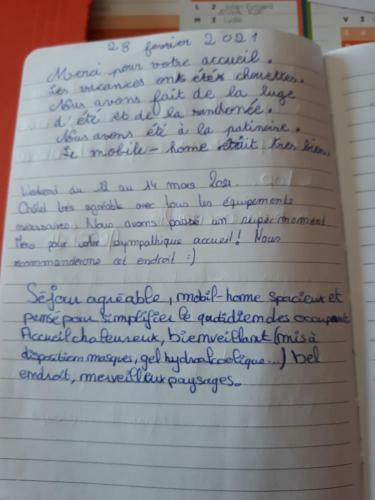 L 2 Julian Evrgard
M 3 Lydie
V 5
28 fevrier 2021
Merci pour votre accueil.
Les vacances ont étés chouettes.
Nous avons fait de la luge
d'été et de la randonée.
Nous avons été à la patinoire.
Le mobile-home était tres bien.
Weekend du 12 au 14 mars 2021.
Chalet très agréable avec tous les équipements
nécessaires, Nous avons passé un super moment
Merci pour votre sympathique accueil! Nous
recommanderons cet endroit :)
Séjour agréable, mobil-home spacieux et
pensé pour simplifier le quotidien des occupants
Accueil chaleureux, bienveillant (mis à
disposition masques, gel hydroalcoolique...) bel
endroit, merveilleux paysages.